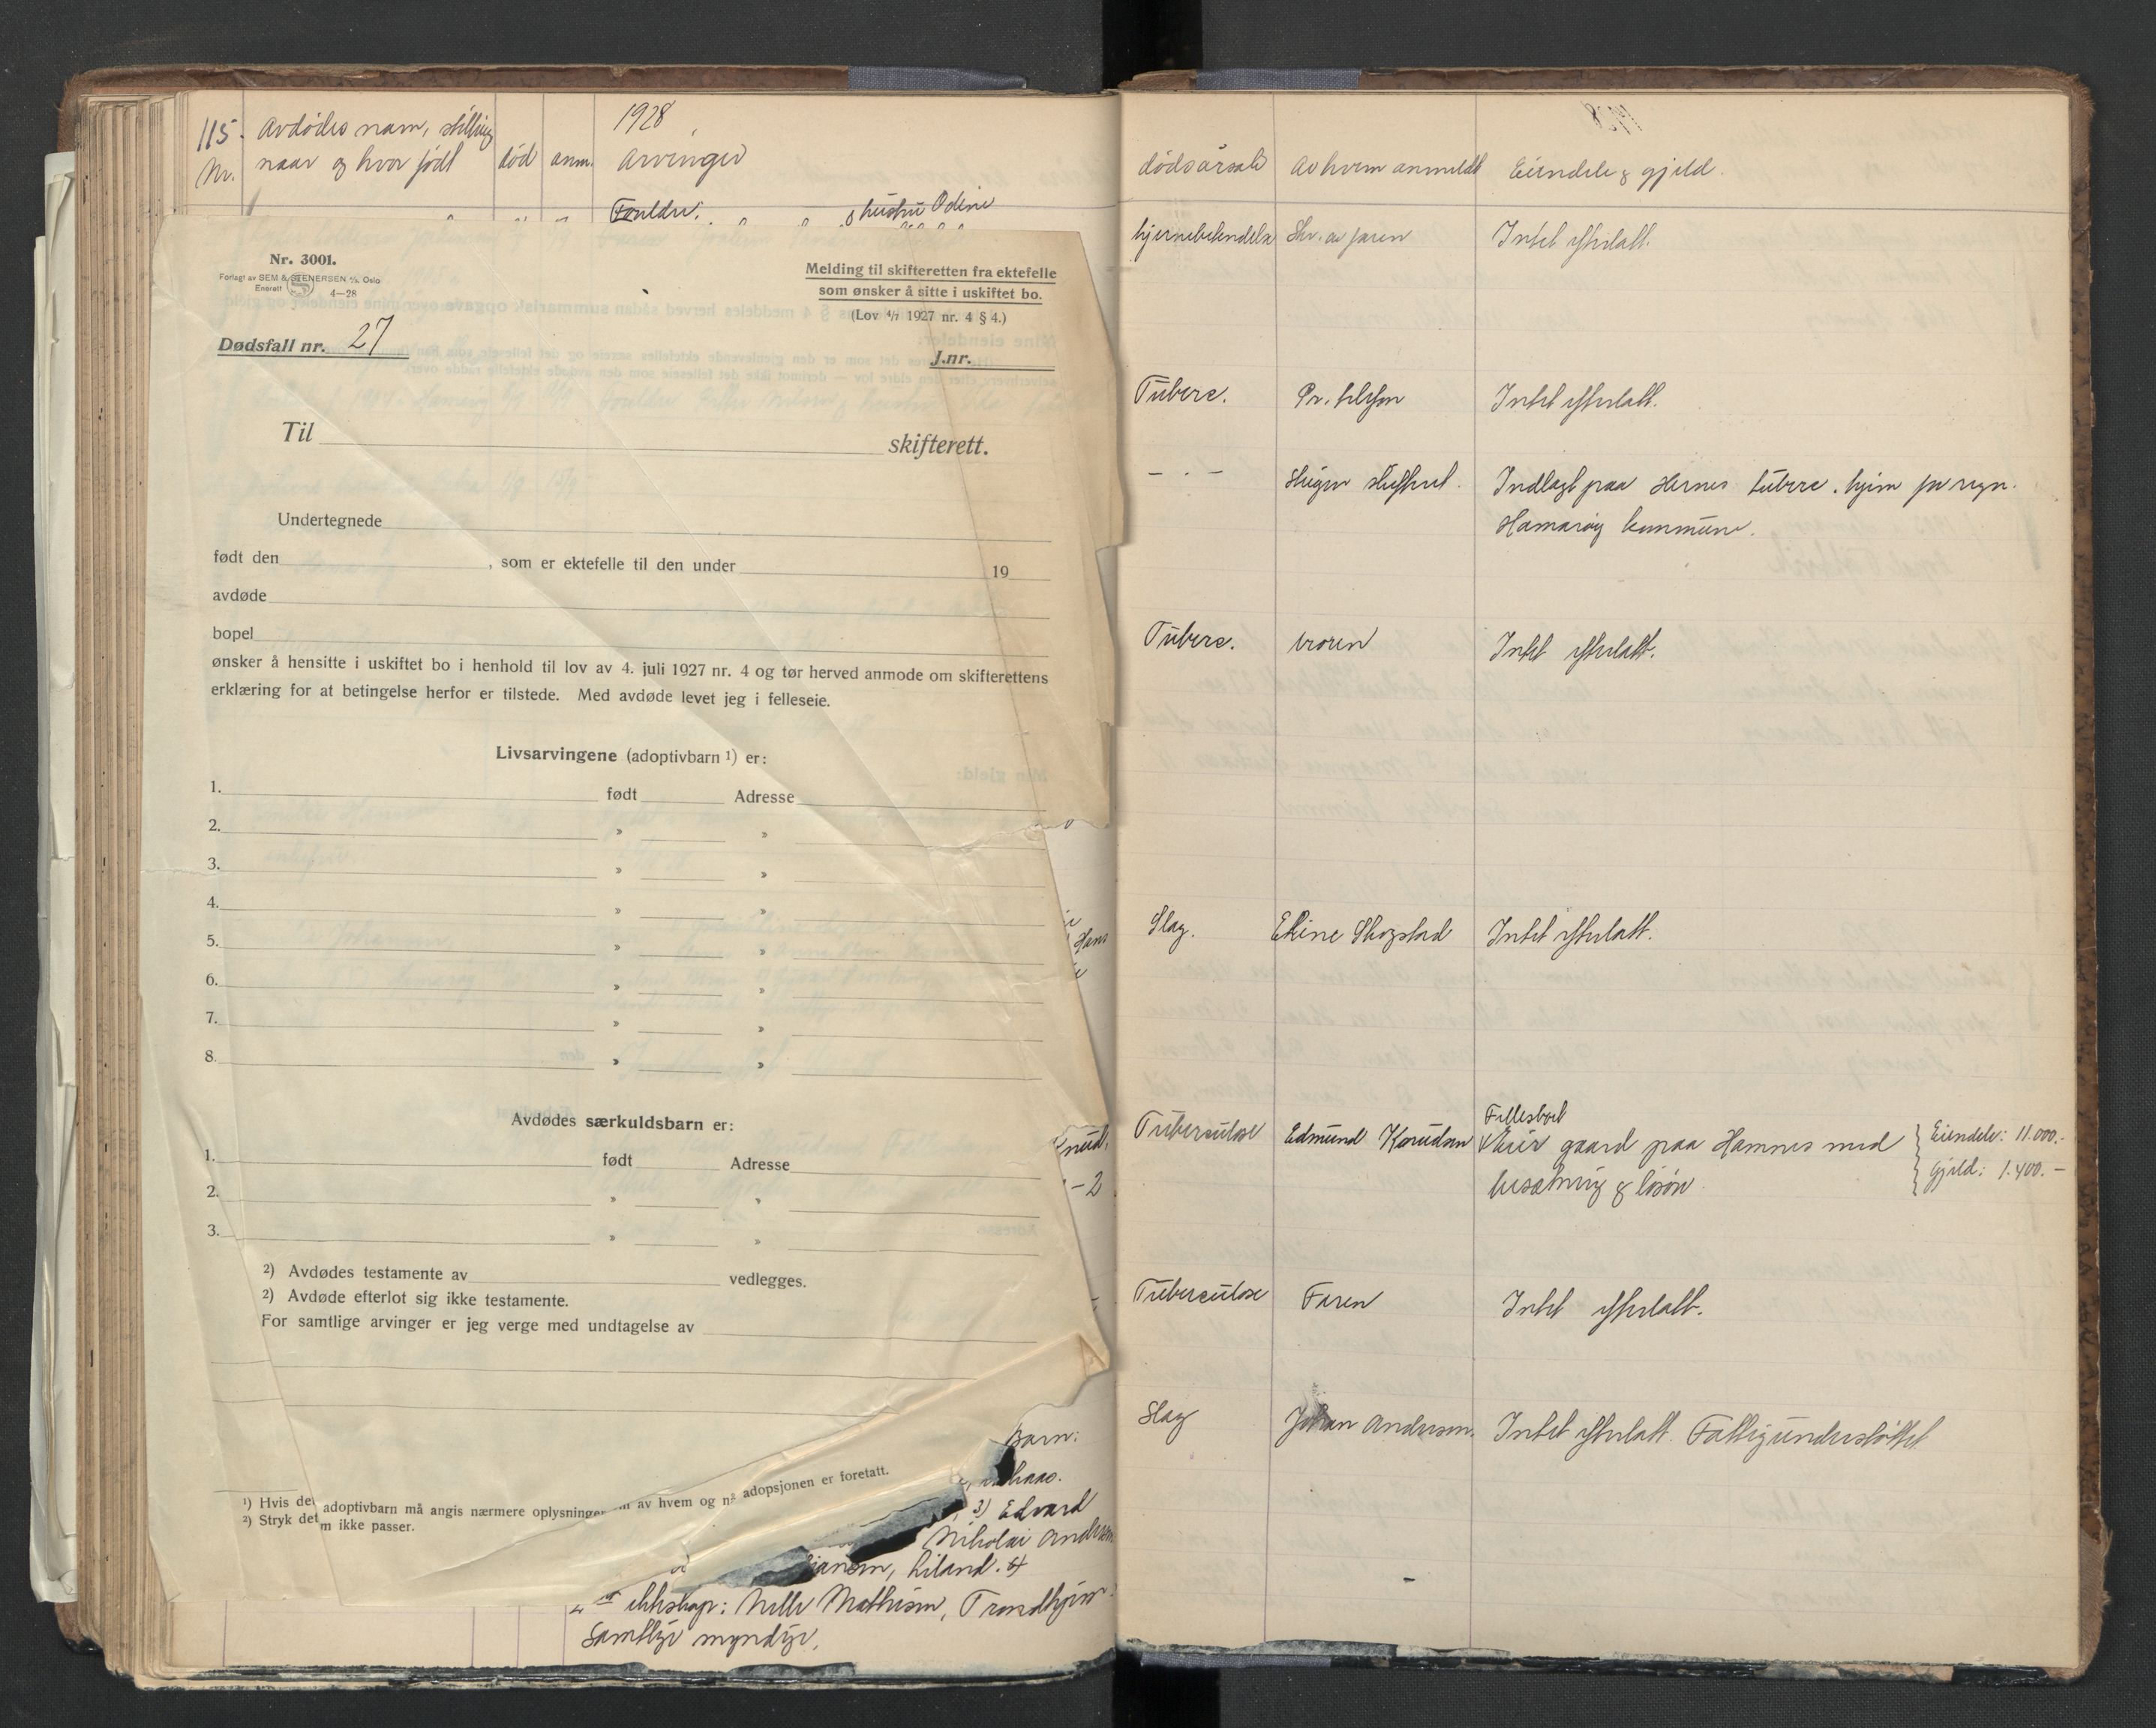 115. Avdødes navn, stilling
Nr. naar og hvor født død anm. Arvinger
1928
Foreldre. hustru Odine
Nr. 3001.
Forlagt av SEM & STENERSEN A/S, Oslo
Enerett 4—28
Melding til skifteretten fra ektefelle
som ønsker å sitte i uskiftet bo.
(Lov 4/7 1927 nr. 4 § 4.)
Dødsfall nr. 27
J.nr.
Til skifterett.
Undertegnede
født den , som er ektefelle til den under 19
avdøde
bopel
ønsker å hensitte i uskiftet bo i henhold til lov av 4. juli 1927 nr. 4 og tør herved anmode om skifterettens
erklæring for at betingelse herfor er tilstede. Med avdøde levet jeg i felleseie.
Livsarvingene (adoptivbarn 1) er:
1. født Adresse
2. » »
3. » »
4. » »
5. » »
6. » »
7. » »
8. » »
Avdødes særkuldsbarn er:
1. født Adresse
2. » »
3. » »
2) Avdødes testamente av vedlegges.
2) Avdøde efterlot sig ikke testamente.
For samtlige arvinger er jeg verge med undtagelse av
1) Hvis det adoptivbarn må angis nærmere oplysninger om av hvem og nå adopsjonen er foretatt.
2) Stryk det m ikke passer.
Hans
Knud.
-2
Barn:
3) Edvard
Nikolai Andersen
Liland. 4
2 ekteskap: Nelle Mathisen, Trondhjem.
Samtlige myndige.
1928
dødsårsak Av hvem anmeldt Eiendele & gjeld.
hjernebetendelse Skr. av faren Intet efterlatt.
Tuberc. Pr. telefon Intet efterlatt.
— · — Steigen skifteret. Indlagt paa Hernes tuberc. hjem for regn.
Hamarøy kommune.
Tuberc. broren Intet efterlatt.
Slag. Eline Skogstad Intet efterlatt.
Tuberculose Edmund Knudsen Fellesboet
Eier gaard paa Hamnes med Eiendele: 11.000.-
besætning & løsøre. Gjeld: 1.400.-
Tuberculose Faren Intet efterlatt.
Slag Johan Andersen. Intet efterlatt. Fattigunderstøttet